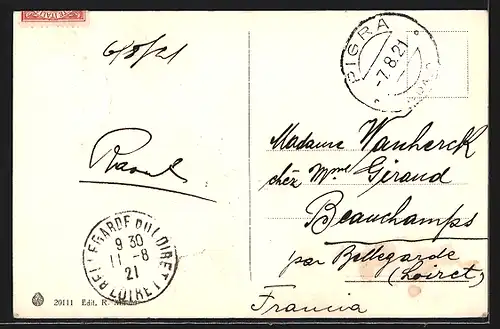 6/8/21
PIGRA
-7.8.21
Raoul
Madame Vanherck
chéz Mme Giraud
Beauchamps
par Bellegarde
(Loiret)
Francia
BELLEGARDE DU LOIRET
9 30
11 -8
21
LOIRET
20111 Edit. R.